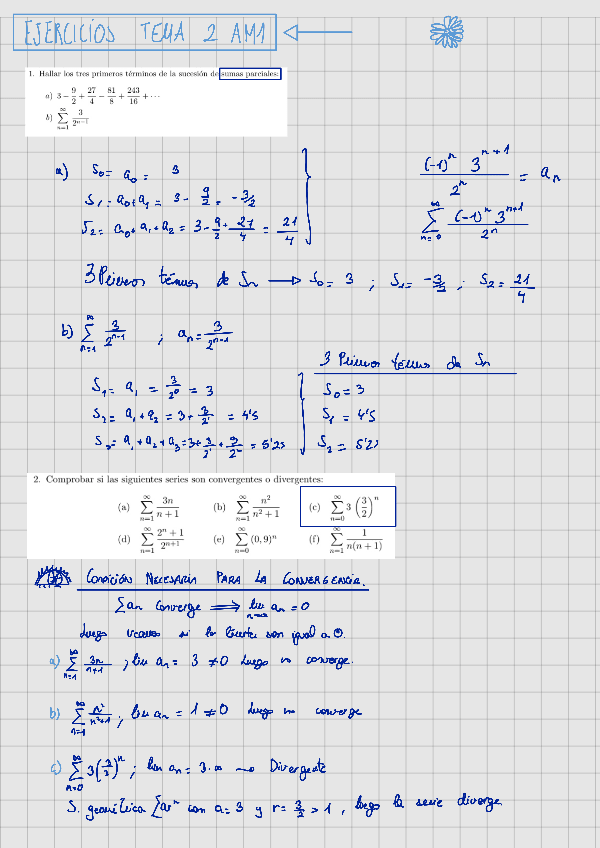 EJERCICIOS TEMA 2 AM1
1. Hallar los tres primeros términos de la sucesión de sumas parciales:
a) 3 − 9/2 + 27/4 − 81/8 + 243/16 + ···
b) ∑_{n=1}^{∞} 3/2^{n−1}
a) S₀ = a₀ = 3
S₁ = a₀ + a₁ = 3 − 9/2 = −3/2
S₂ = a₀ + a₁ + a₂ = 3 − 9/2 + 27/4 = 21/4
(-1)^n 3^{n+1} / 2^n = a_n
∑_{n=0}^{∞} (-1)^n 3^{n+1} / 2^n
3 Primeros térmnos de Sn → S₀ = 3 ; S₁ = −3/2 ; S₂ = 21/4
b) ∑_{n=1}^{∞} 3/2^{n-1} ; a_n = 3/2^{n-1}
S₁ = a₁ = 3/2⁰ = 3
S₂ = a₁ + a₂ = 3 + 3/2¹ = 4'5
S₃ = a₁ + a₂ + a₃ = 3 + 3/2¹ + 3/2² = 5'25
3 Primeros térmnos de Sn
S₀ = 3
S₁ = 4'5
S₂ = 5'25
2. Comprobar si las siguientes series son convergentes o divergentes:
(a) ∑_{n=1}^{∞} 3n/(n+1) (b) ∑_{n=1}^{∞} n²/(n²+1) (c) ∑_{n=0}^{∞} 3(3/2)^n
(d) ∑_{n=1}^{∞} (2^n+1)/2^{n+1} (e) ∑_{n=0}^{∞} (0,9)^n (f) ∑_{n=1}^{∞} 1/(n(n+1))
CONDICIÓN NECESARIA PARA LA CONVERGENCIA.
∑an converge ⟹ lim_{n→∞} an = 0
Luego veamos si los límites son igual a 0.
a) ∑_{n=1}^{∞} 3n/(n+1) ; lim an = 3 ≠ 0 luego no converge.
b) ∑_{n=1}^{∞} n²/(n²+1) ; lim an = 1 ≠ 0 luego no converge
c) ∑_{n=0}^{∞} 3(3/2)^n ; lim an = 3·∞ ⇝ Divergente
S. geométrica ∑ar^n con a=3 y r= 3/2 > 1, luego la serie diverge